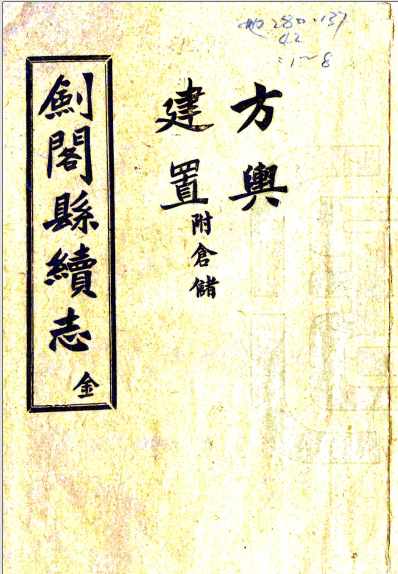 地280·137
42
1~8
方輿
建置附倉儲
劍閣縣續志 金